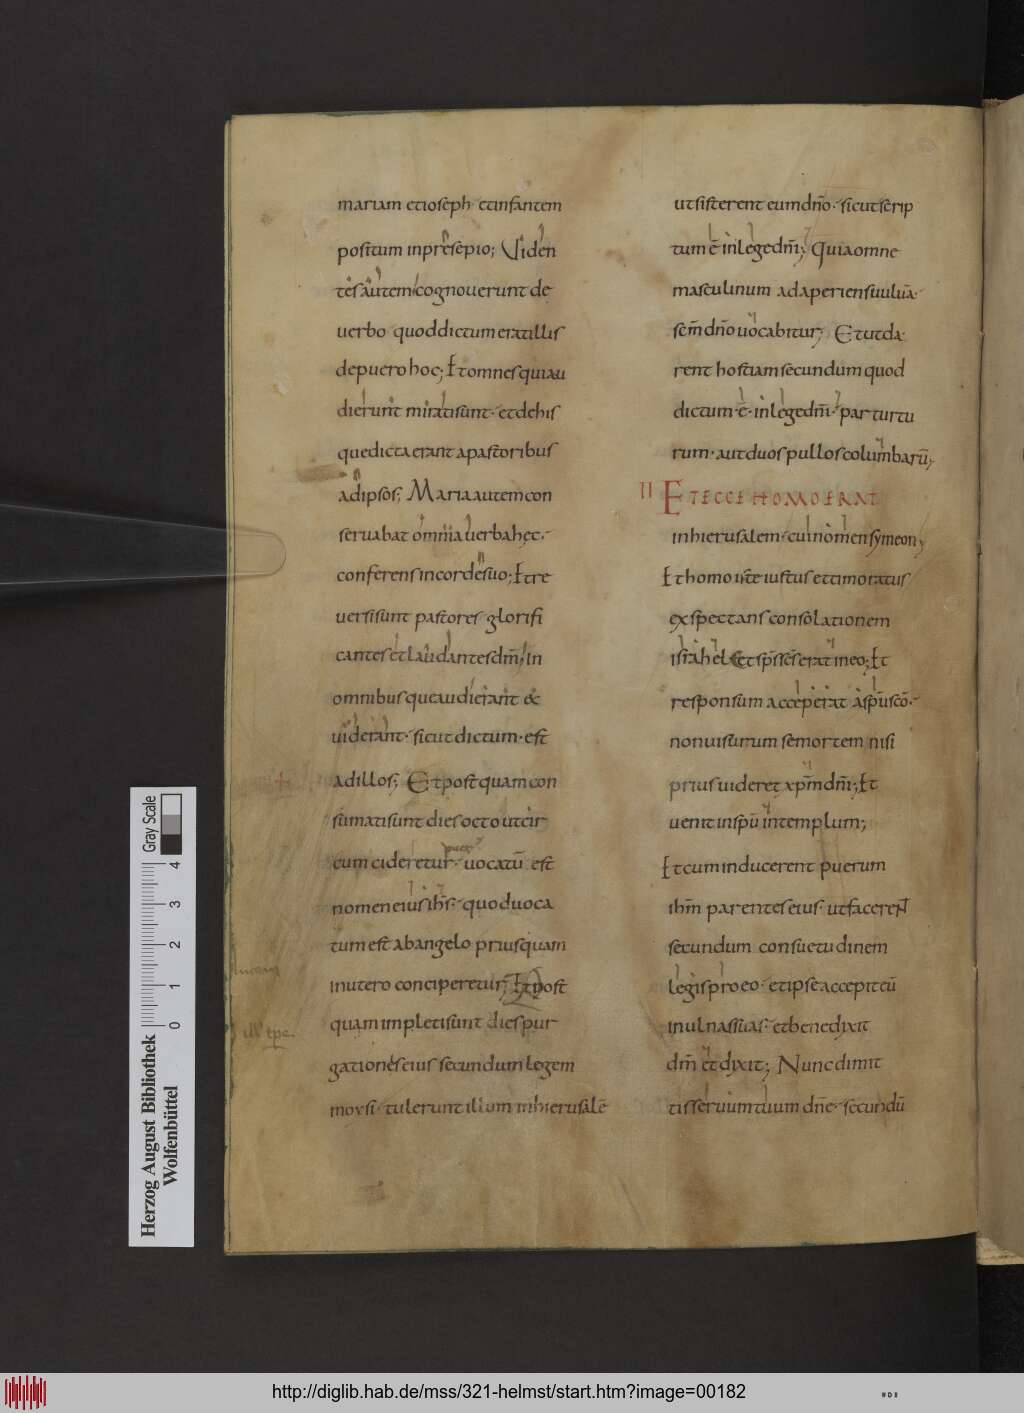 mariam et ioseph · et infantem
positum in presepio; Viden
tes autem cognouerunt de
uerbo quod dictum erat illis
de puero hoc; Et omnes qui au
dierunt mirati sunt · et de his
que dicta erant a pastoribus
ad ipsos; Maria autem con
seruabat omnia uerba hęc ·
conferens in corde suo; Et re
uersi sunt pastores · glorifi
cantes et laudantes dm̄; in
omnibus que audierant &
uiderant · sicut dictum · est
ad illos; Et post quam con
sumati sunt dies octo ut cir
cum cideretur · uocatū est
puer
nomen eius ih̄s · quod uoca
tum est ab angelo prius quam
in utero conciperetur; Et post
quam impleti sunt dies pur
gationes eius secundum legem
moysi · tulerunt illum in hierusalē
ut sisterent eum dn̄o · sicut scrip
tum ē in lege dn̄i; Quia omne
masculinum adaperiens uuluā ·
sc̄m dn̄o uocabitur; Et ut da
rent hostiam secundum quod
dictum · ē · in lege dn̄i · par turtu
rum · aut duos pullos columbarū;
II ET ECCE HOMO ERAT
in hierusalem · cui nomen symeon;
Et homo iste iustus et timoratus
exspectans consolationem
israhel et sp̄s sc̄s erat in eo; Et
responsum acceperat a sp̄u sc̄o ·
non uisurum se mortem nisi
prius uideret xp̄m dn̄i; Et
uenit in sp̄u in templum;
Et cum inducerent puerum
ihm̄ parentes eius · ut facerent
secundum consuetudinem
legis pro eo · et ipse accepit eū
in ulnas suas · et benedixit
dm̄ et dixit; Nunc dimit
tis seruum tuum dn̄e · secundū
Herzog August Bibliothek
Wolfenbüttel
0 1 2 3 4
Gray Scale
http://diglib.hab.de/mss/321-helmst/start.htm?image=00182